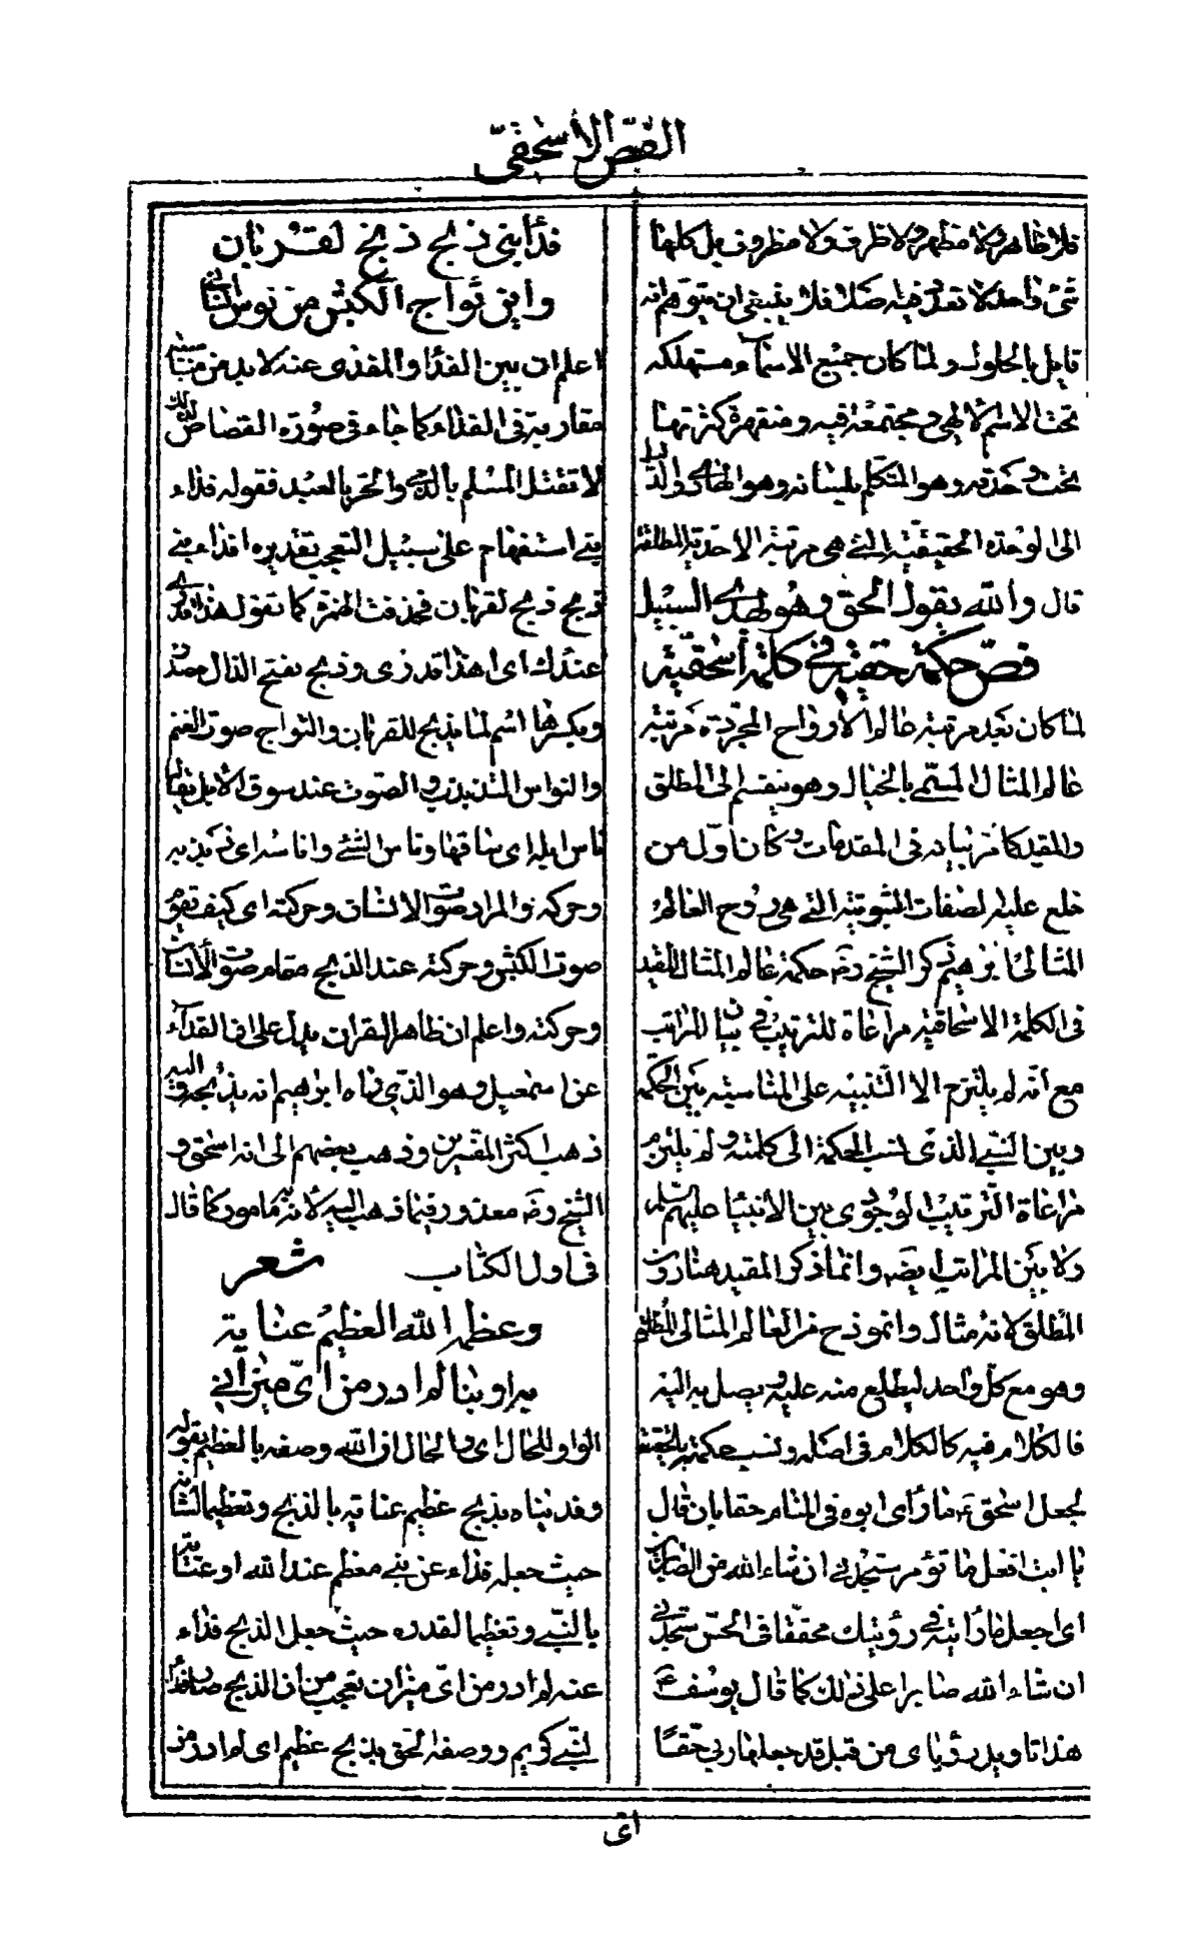 الفص الأسحقيّ
فلا ظاهر ولا مظهر ولا ظرف ولا مظروف بل كلها
شئ واحد لا تعدد فيه اصلا فلا ينبغى ان يتوهم انه
قايل بالحلول ولما كان جميع الاسماء مستهلكه
تحت الاسم الالهى ومجتمعة فيه ومنقهرة كثرتها
تحت وحدته وهو المتكلم بلسانه وهو الهادى والدليل
الى الوحدة الحقيقية التى هى مرتبة الاحدية المطلقة
قال والله يقول الحق وهو يهدى السبيل
فصّ حكمة حقية فى كلمة أسحقية
لما كان بعد مرتبة عالم الارواح المجردة مرتبة
عالم المثال المسمى بالخيال وهو ينقسم الى المطلق
والمقيد كما مر بيانه فى المقدمات وكان اول من
خلع عليه الصفات الثبوتية التى هى روح العالم
المثالى ابرهيم ذكر الشيخ رضه حكمة عالم المثال المقيد
فى الكلمة الاسحاقية مراعاة للترتيب فى بيان المراتب
مع انه لم يلتزم الا التنبيه على المناسبة بين الحكمة
وبين النبى الذى نسب الحكمة الى كلمته ولم يلتزم
مراعاة الترتيب الوجودى بين الأنبيا عليهم السلم
ولا بين المراتب ايضه وانما ذكر المقيد هنا دون
المطلق لانه مثال وانموذج من العالم المثالى المطلق
وهو مع كل واحد ليطلع منه عليه ويصل به اليه
فالكلام فيه كالكلام فى اصله ونسب حكمته بالحقية
لجعل اسحق ع ما رأى ابوه فى المنام حقا بان قال
يا ابت افعل ما تؤمر ستجدنى ان شاء الله من الصابرين
اى اجعل ما رأيته فى رؤيتك محققا فى الحس ستجدنى
ان شاء الله صابرا على ذلك كما قال يوسف ع
هذا تاويل رؤياى من قبل قد جعلها ربى حقا
فدا نبى ذبح ذبح لقربان
واين ثواج الكبش من نوس انسان
اعلم ان بين الفدا والمفدى عنه لا بد من مناسبة
مقاربة فى الفداء كما جاء فى صورة القصاص لذلك
لا تقتل المسلم بالذمى والحر بالعبد فقوله فداء
نبى استفهام على سبيل التعجب تقديره افداء نبى
ذبح ذبح لقربان فحذفت الهمزة كما تقول هذا قدرى
عندك اى اهذا قدرى وذبح بفتح الذال مصدر
وبكسرها اسم لما يذبح للقربان والثواج صوت الغنم
والنواس التذبذب والصوت عند سوق الابل يقال
ناس ابله اى ساقها وناس الشئ واناسه اى ذبذبه
وحركه والمراد صوت الانسان وحركته اى كيف تقوم
صوت الكبش وحركته عند الذبح مقام صوت الأنسان
وحركته واعلم ان ظاهر القران يدل على ان الفداء
عن اسمعيل وهو الذى رآه ابرهيم انه يذبحه واليه
ذهب اكثر المفسرين وذهب بعضهم الى انه اسحق و
الشيخ رضه معذور فيما ذهب اليه لانه به مامور كما قال
فى اول الكتاب شعر
وعظمه الله العظيم عناية
به او بنا لم ادر من اىّ ميزان
الواو للحال اى والحال ان الله وصفه بالعظيم بقوله
وفديناه بذبح عظيم عناية بالذبح وتعظيما لشانه
حيث جعله فداء عن نبى معظم عند الله او عناية
بالنبى وتعظيما لقدره حيث جعل الذبح فداء
عنه لم ادر من اىّ ميزان تعجب من ان الذبح صار فداء
لنبى كريم ووصفه الحق بذبح عظيم اى لم ادر من
اى